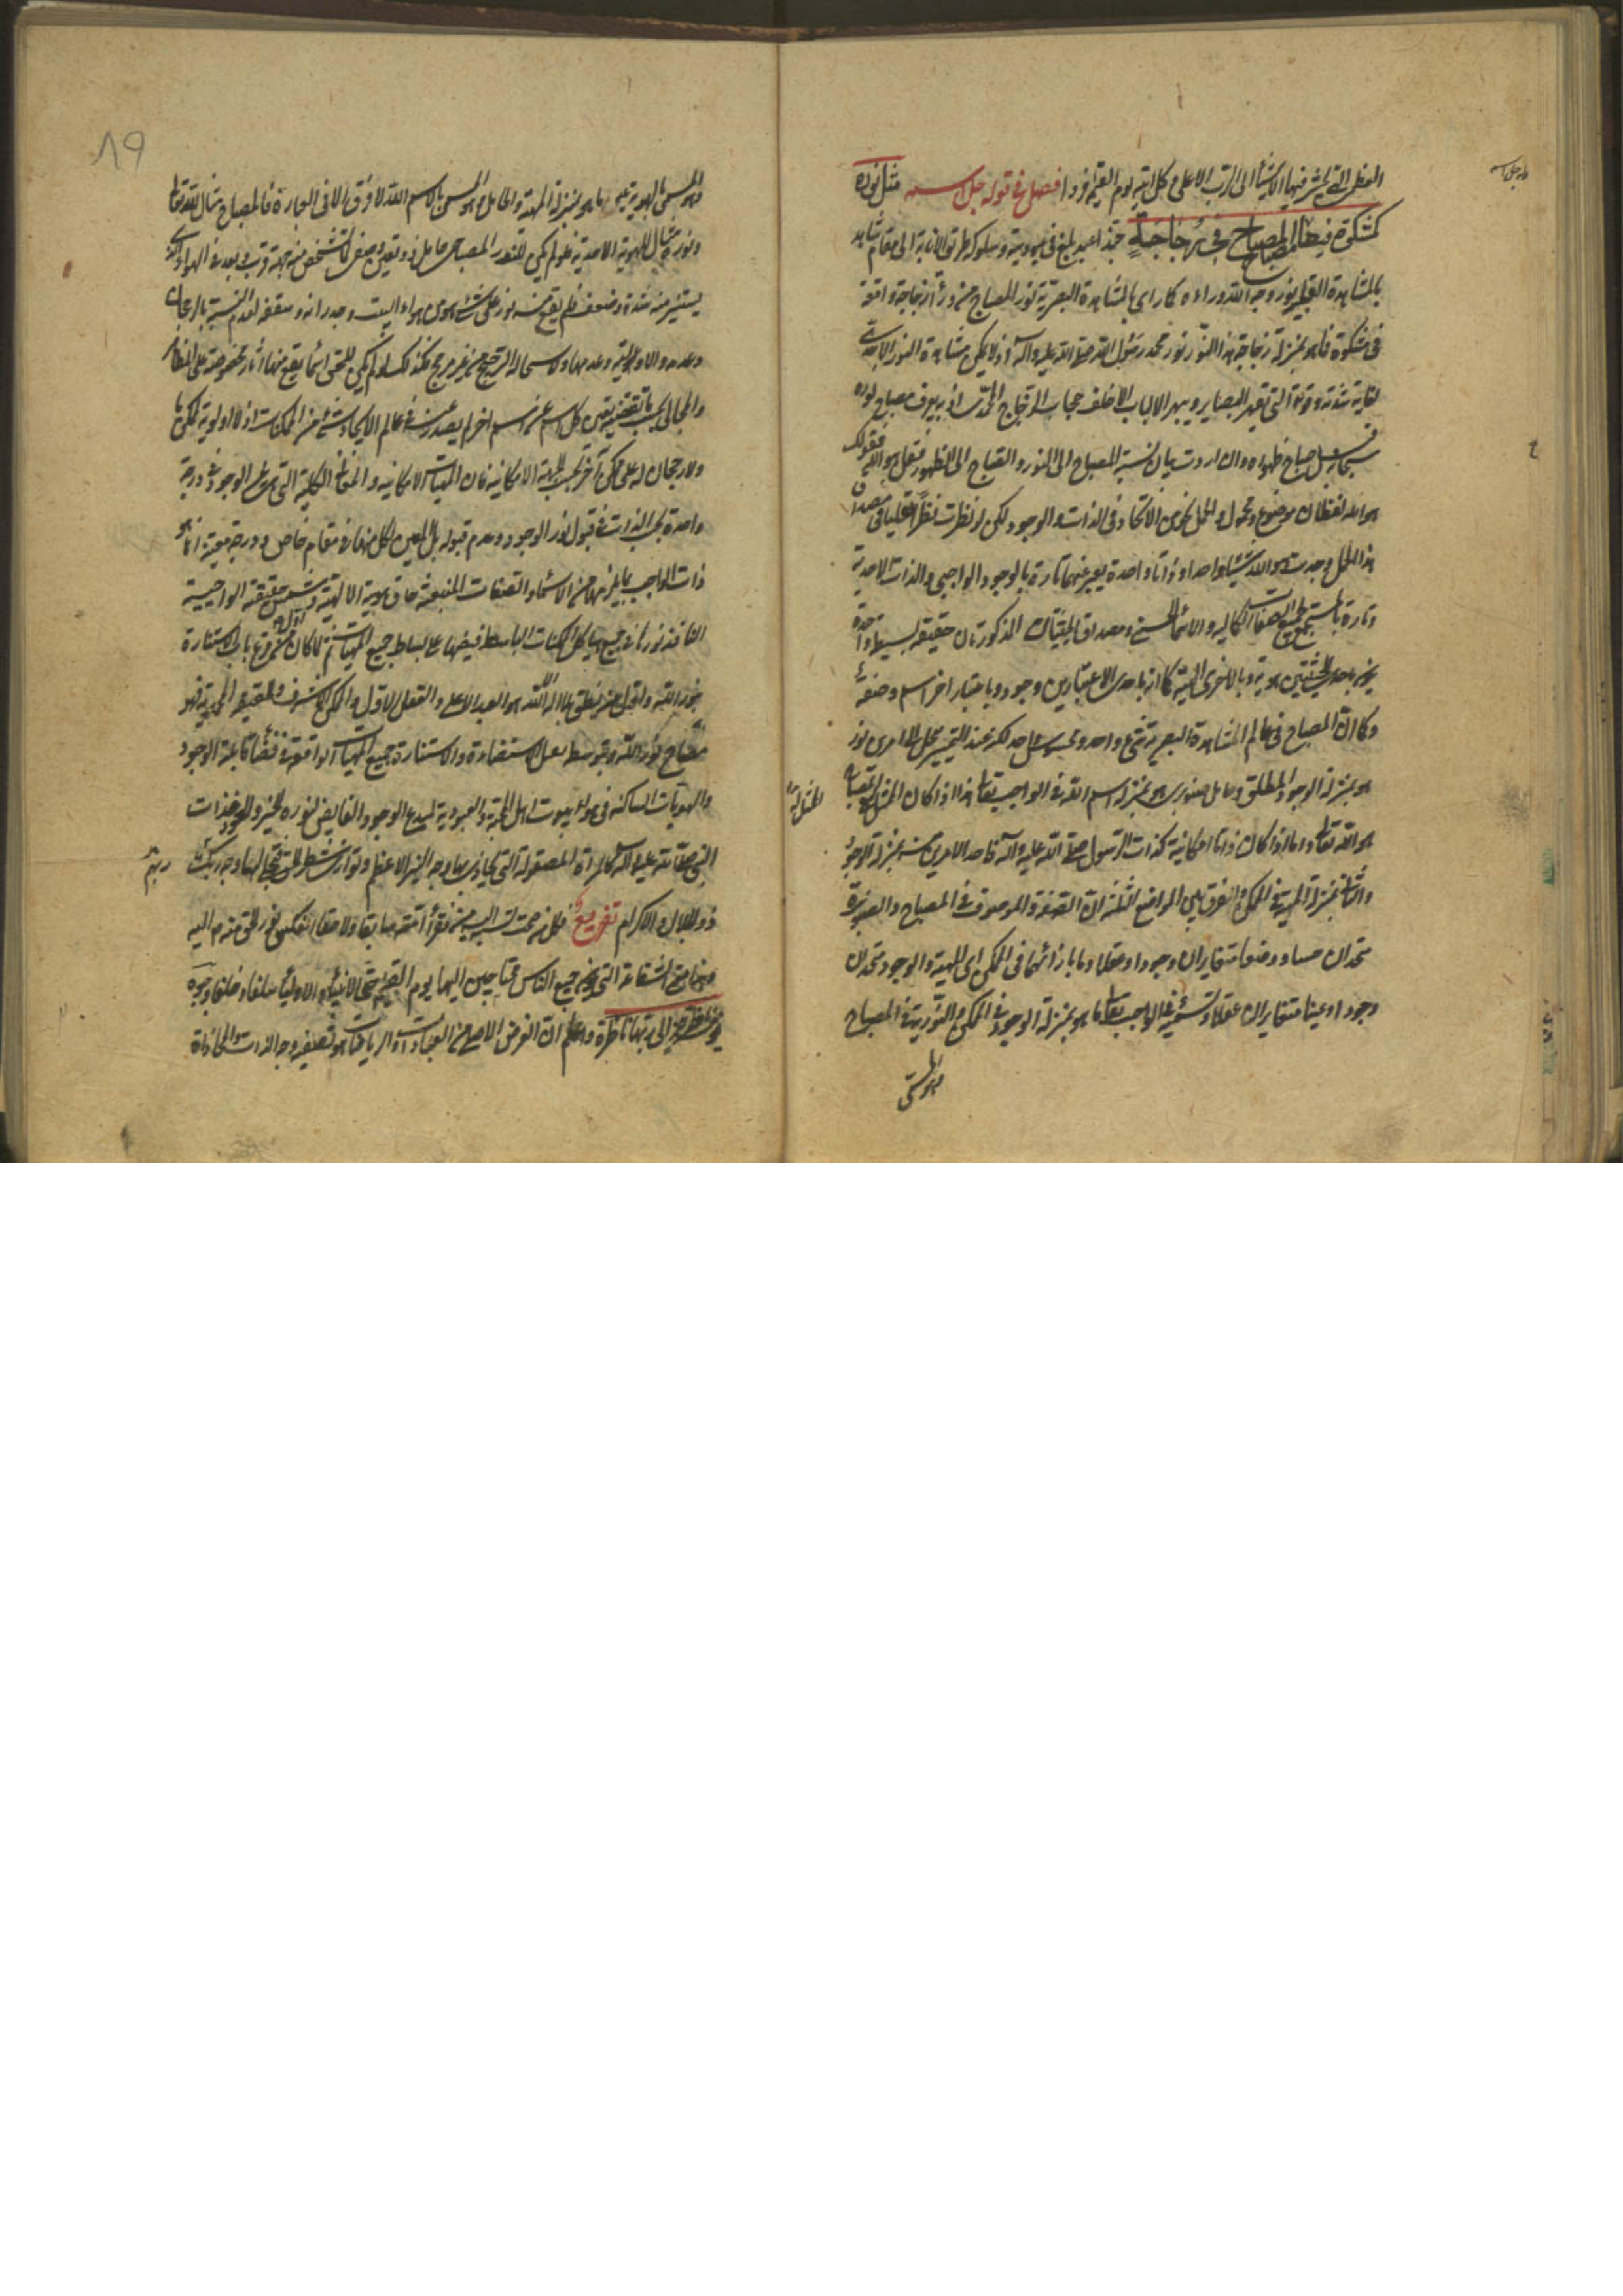 العظمى التي يحشر فيها الاشياء الى الرب الاعلى وكل آتيه يوم القيمة فردا فصل في قوله جل اسمه مثل نوره
كمشكوة فيها المصباح في زجاجة حبذا عبد بلغ في عبوديته وسلوكه طريق الانابة الى مقام شاهد
بالمشاهدة القلبية نور وجه الله وراءه كما رأى بالمشاهدة البصرية نور المصباح من وراء زجاجة واقعة
في مشكوة فما هو بمنزلة زجاجة هذا النور نور محمد رسول الله صلى الله عليه وآله اذ لا يمكن مشاهدة النور الاحدي
لغاية شدته وقوته التي تقهر البصاير ويبهر الالباب الا خلف حجاب الزجاج المحمدي اذ به يعرف مصباح نوره
فسبحانه بل صباح ظهوره وان اردت بيان نسبة المصباح الى النور والصباح الى الظهور فقل هو الله فقولك
هو الله لفظان موضوع ومحمول والحمل نحو من الاتحاد في الذات والوجود لكن لو نظرت نظرا عقليا في مصداق
هذا الحمل وجدت هو والله شيئا واحدا وذاتا واحدة يعبر عنها تارة بالوجود الواجبي والذات الاحدية
وتارة بالمستجمع لجميع الصفات الكمالية والاسماء الحسنى ومصداق الحيثيتان المذكورتان حقيقة بسيطة واحدة
هو باحدى الحيثيتين هوية وبالاخرى الهية كما انه باحدى الاعتبارين وجود وباعتبار آخر اسم وصفة
وكما ان المصباح في عالم المشاهدة البصرية شيء واحد ومحسوس واحد لكن عند التمييز يحل الى امرين نور
هو بمنزلة الوجود المطلق وحامل صنوبري هو بمنزلة اسم الله في الواجب تعالى هذا اذا كان الممثل له بالمصباح
هو الله تعالى واما اذا كان ذاتا امكانية كذات الرسول صلى الله عليه وآله فاحد الامرين منه بمنزلة الوجود
والثاني بمنزلة المهية في الممكن والفرق بين المواضع الثلثة ان الصفة والموصوف في المصباح والصنوبرة
متحدان حسا ووضعا متغايران وجودا وعقلا وما بازائهما في الممكن اي المهية والوجود متحدان
وجودا وعينا متغايران عقلا وتسمية في الواجب تعالى ما هو بمنزلة الوجود في الممكن والنورية في المصباح
وهو المسمى
وهو المسمى بالهوية عين ما هو بمنزلة المهية والحامل وهو المسمى بالاسم الله لا فرق الا في العبارة فالمصباح مثال لله تعالى
ونوره مثال للهوية الاحدية فلو لم يكن للنور المصباحي حامل ذو تعين وصفي لما تشخص منه جهة قرب وبعد في الهواء الذي
يستنير منه شدة وضعف فلم يقع منه نور على شيء سوى هواء البيت وجدرانه وسقفه لعدم النسبة بالرجحان
وعدمه والاولوية وعدمها ولاستحالة الترجيح من غير مرجح فكذلك لو لم يكن للحق اسماء يقع منها آثار مخصوصة على المظاهر
والمجالي بحسب ما يقتضيه تعين كل اسم عن اسم آخر لم يصدر عنه في عالم الايجاد شيء من الممكنات اذ لا اولوية لممكن ما
ولا رجحان له على ممكن آخر بحسب الجهة الامكانية فان المهيات الامكانية والحقائق الكلية التي يقع في الوجود في درجة
واحدة بحسب الذات في قبول نور الوجود وعدم قبوله بل المعين لكل منها في مقام خاص ودرجة معينة انما هو
ذات الواجب بما يلزمها من الاسماء والصفات المنبعثة من هوية الالهية وشمس حقيقته الواجبية
النافذ نورها في جميع هياكل الممكنات الباسط فيضها على بساط جميع المهيات ثم لما كان اول من قرع باب الاستنارة
بنور الله واول من نطق بلا اله الا الله هو العبد الاعلى والعقل الاول والممكن الاشرف والحقيقة المحمدية فهو
مفتاح نور الله وبتوسطه يعمل الاستضاءة والاستنارة جميع المهيات الواقعة في فضاء قابلية الوجود
والهويات الساكنة في هواء بيوت اهل المحبة والعبودية لمبدع الوجود الفايض لنوره الخير والجود فذات
النبي صلى الله عليه وآله كالمرآة المصقولة التي يحاذي بها وجه النير الاعظم ويوازي شطر الحق فيتجلى لها وجه ربك
ذو الجلال والاكرام تفريع فكل من صحت نسبته اليه من فقراء امته سابقا ولاحقا انعكس نور الحق منه اليه
وهذا معنى الشفاعة التي يكون جميع الناس محتاجين اليها يوم القيمة حتى الانبياء والاولياء سلفا وخلفا وجوه
يومئذ ناضرة الى ربها ناظرة واعلم ان الغرض الاصلي من العبادات والرياضات هو تصفية وجه الذات والمحاذاة